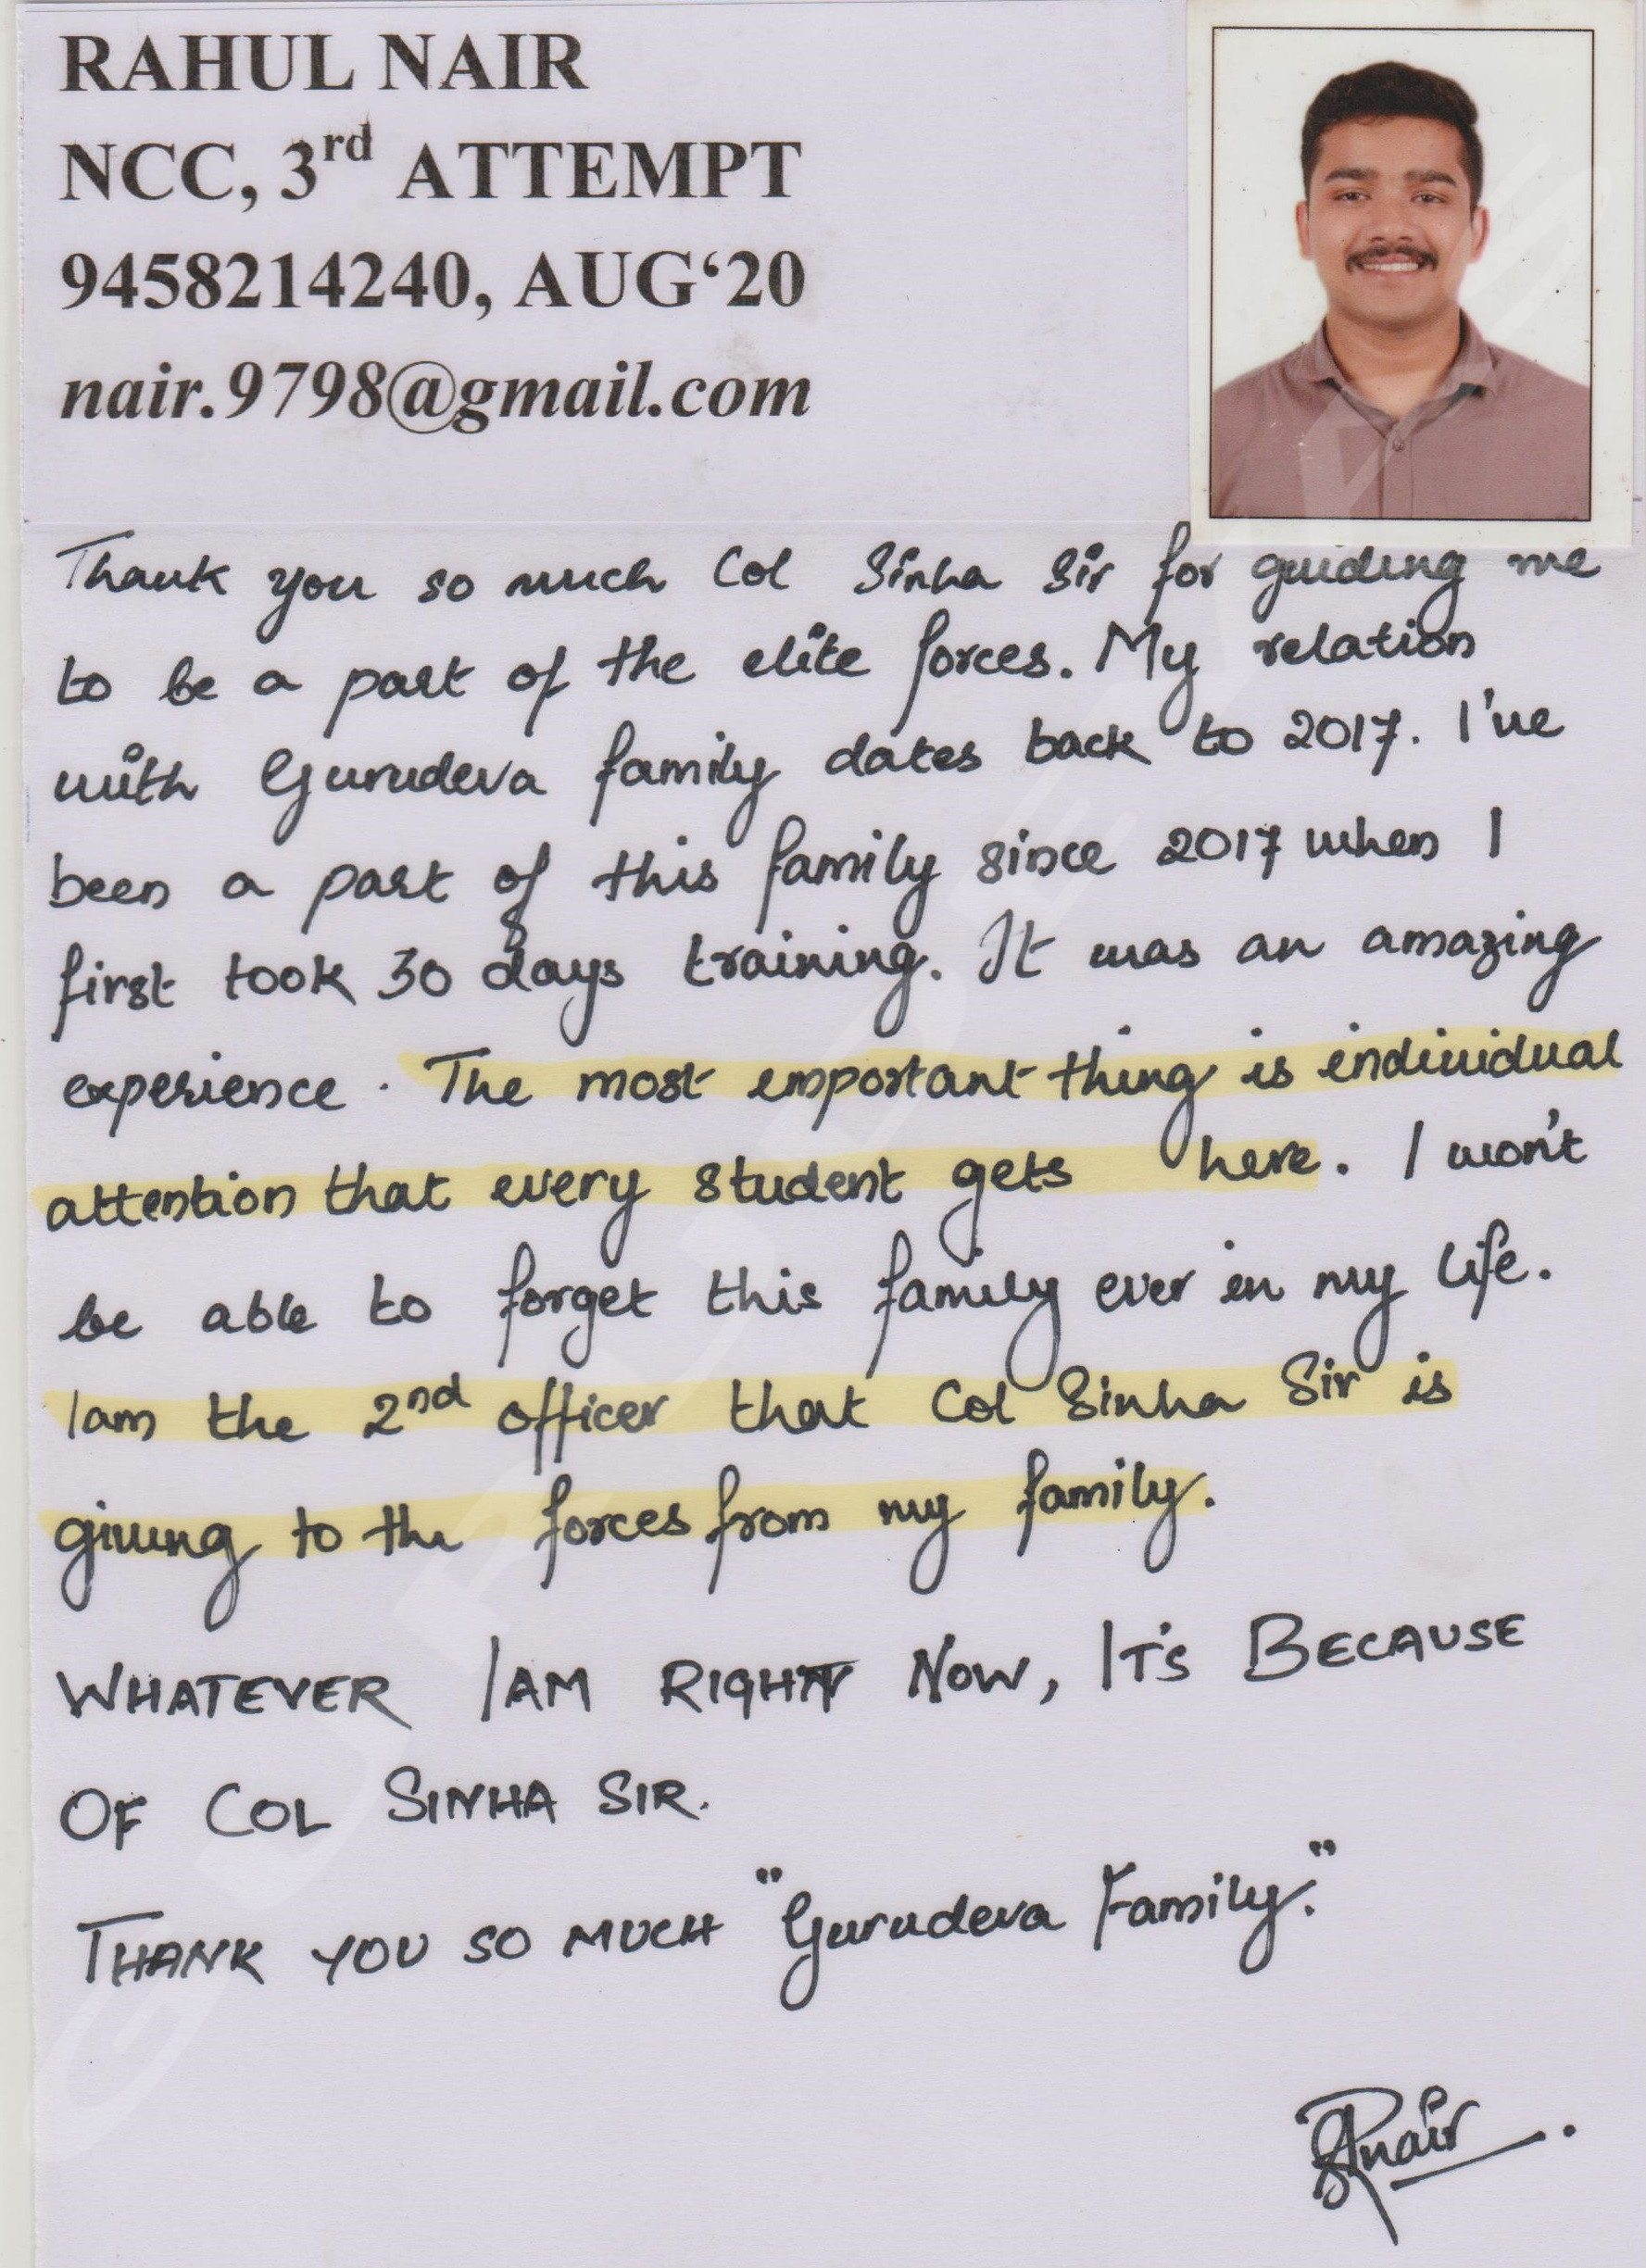 RAHUL NAIR
NCC, 3rd ATTEMPT
9458214240, AUG‘20
nair.9798@gmail.com
Thank you so much Col Sinha Sir for guiding me
to be a part of the elite forces. My relation
with Gurudeva family dates back to 2017. I've
been a part of this family since 2017 when I
first took 30 days training. It was an amazing
experience. The most important thing is individual
attention that every student gets here. I won't
be able to forget this family ever in my life.
I am the 2nd officer that Col Sinha Sir is
giving to the forces from my family.
WHATEVER I AM RIGHT NOW, IT'S BECAUSE
OF COL SINHA SIR.
THANK YOU SO MUCH "Gurudeva Family."